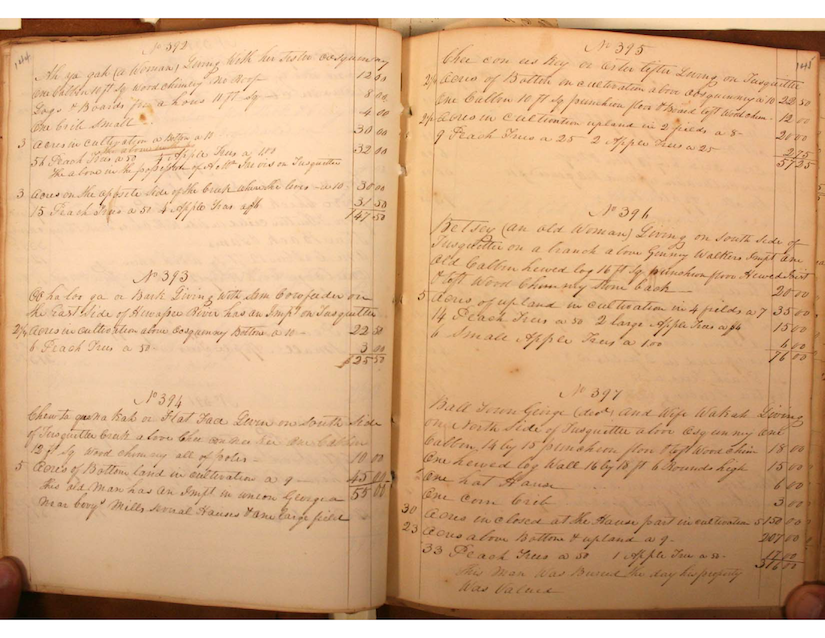 144
No 392
Ah ya gah (a Woman) Living with her Sister
One Cabbin 11 ft Sq Wood chimny No Roof 12 00
Logs & Boards for a house 11 ft Sq 8 00
One Crib Small 4 00
3 Acres in cultivation a 10 30 00
Peach Trees a 50 Apple Trees a 100 32 00
the above in the possession of Jarvis on Tusquittee
3 Acres on the opposite Side of the Creek where she lives a 10 30 00
15 Peach Trees a 50 4 Apple Trees 31 50
147 50
No 393
or Bark Living with Cowfeeder on
the East Side of Hiwassee River has an Impt on Tusquittee
2 1/4 Acres in cultivation above Bottom a 10 22 50
6 Peach Trees a 50 3 00
$25 50
No 394
or Flat Face Lives on South Side
of Tusquittee Creek above One Cabbin
12 ft Sq Wood chimny all of poles 10 00
5 Acres of Bottom land in cultivation a 9 45 00
55 00
this old Man has an Impt in Georgia
Near Mills Several Houses & one large field
145
No 395
Living on Tusquittee
2 1/4 Acres of Bottom in cultivation above a 10 22 50
One Cabbin 10 ft Sq puncheon floor & Board loft Wood chim 12 00
2 1/2 Acres in cultivation upland in 2 fields a 8 20 00
9 Peach Trees a 25 2 Apple Trees a 25 2 75
57 25
No 396
Betsey (an old Woman) Living on South Side of
Tusquittee on a branch above Ginny Walkers Impt one
Old Cabbin hewed log 16 ft Sq puncheon floor Hewed
& loft Wood Chimny Stone back 20 00
5 Acres of upland in cultivation in 4 fields a 7 35 00
14 Peach Trees a 50 2 large Apple Trees a $4 15 00
6 Small Apple Trees a 100 6 00
76 00
No 397
Ball Town George (decd) and Wife Living
on North Side of Tusquittee above one
Cabbin 14 by 15 puncheon floor & loft Wood chim 18 00
One hewed log Wall 16 by 18 ft 6 Rounds high 15 00
One hot House 6 00
One corn Crib 3 00
30 Acres in closed at the House part in cultivation 5 150 00
23 Acres above Bottom & upland a 9 207 00
33 Peach Trees a 50 1 Apple Tree a 17 00
316 00
This Man Was Buried the day his property
Was Valued